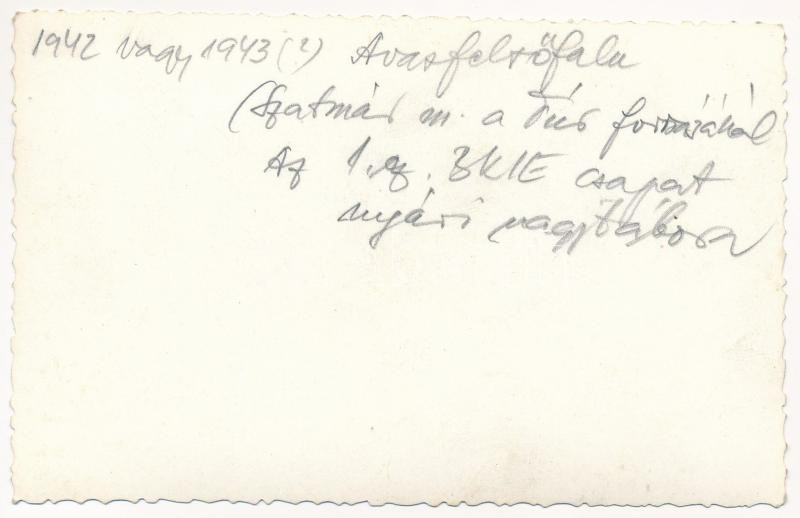 1942 vagy 1943 (?) Avasfelsőfalu
(Szatmár m. a Túr forrásánál
Az 1. sz. BKIE csapat
nyári nagytábora